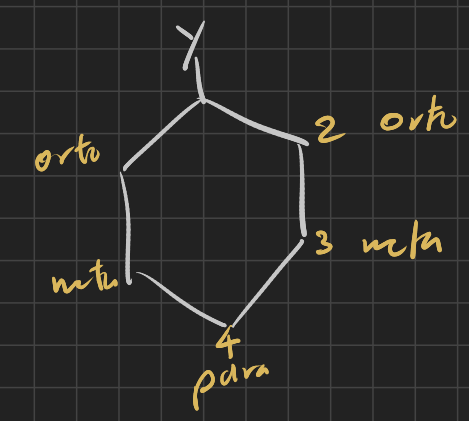 Y
2 orto
orto
3 meta
meta
4
para